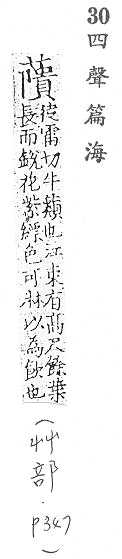 30 四聲篇海
蘈 徒雷切牛蘈也江東有高尺餘葉
長而銳花紫縹色可淋以為飲也
(艸部.p347)